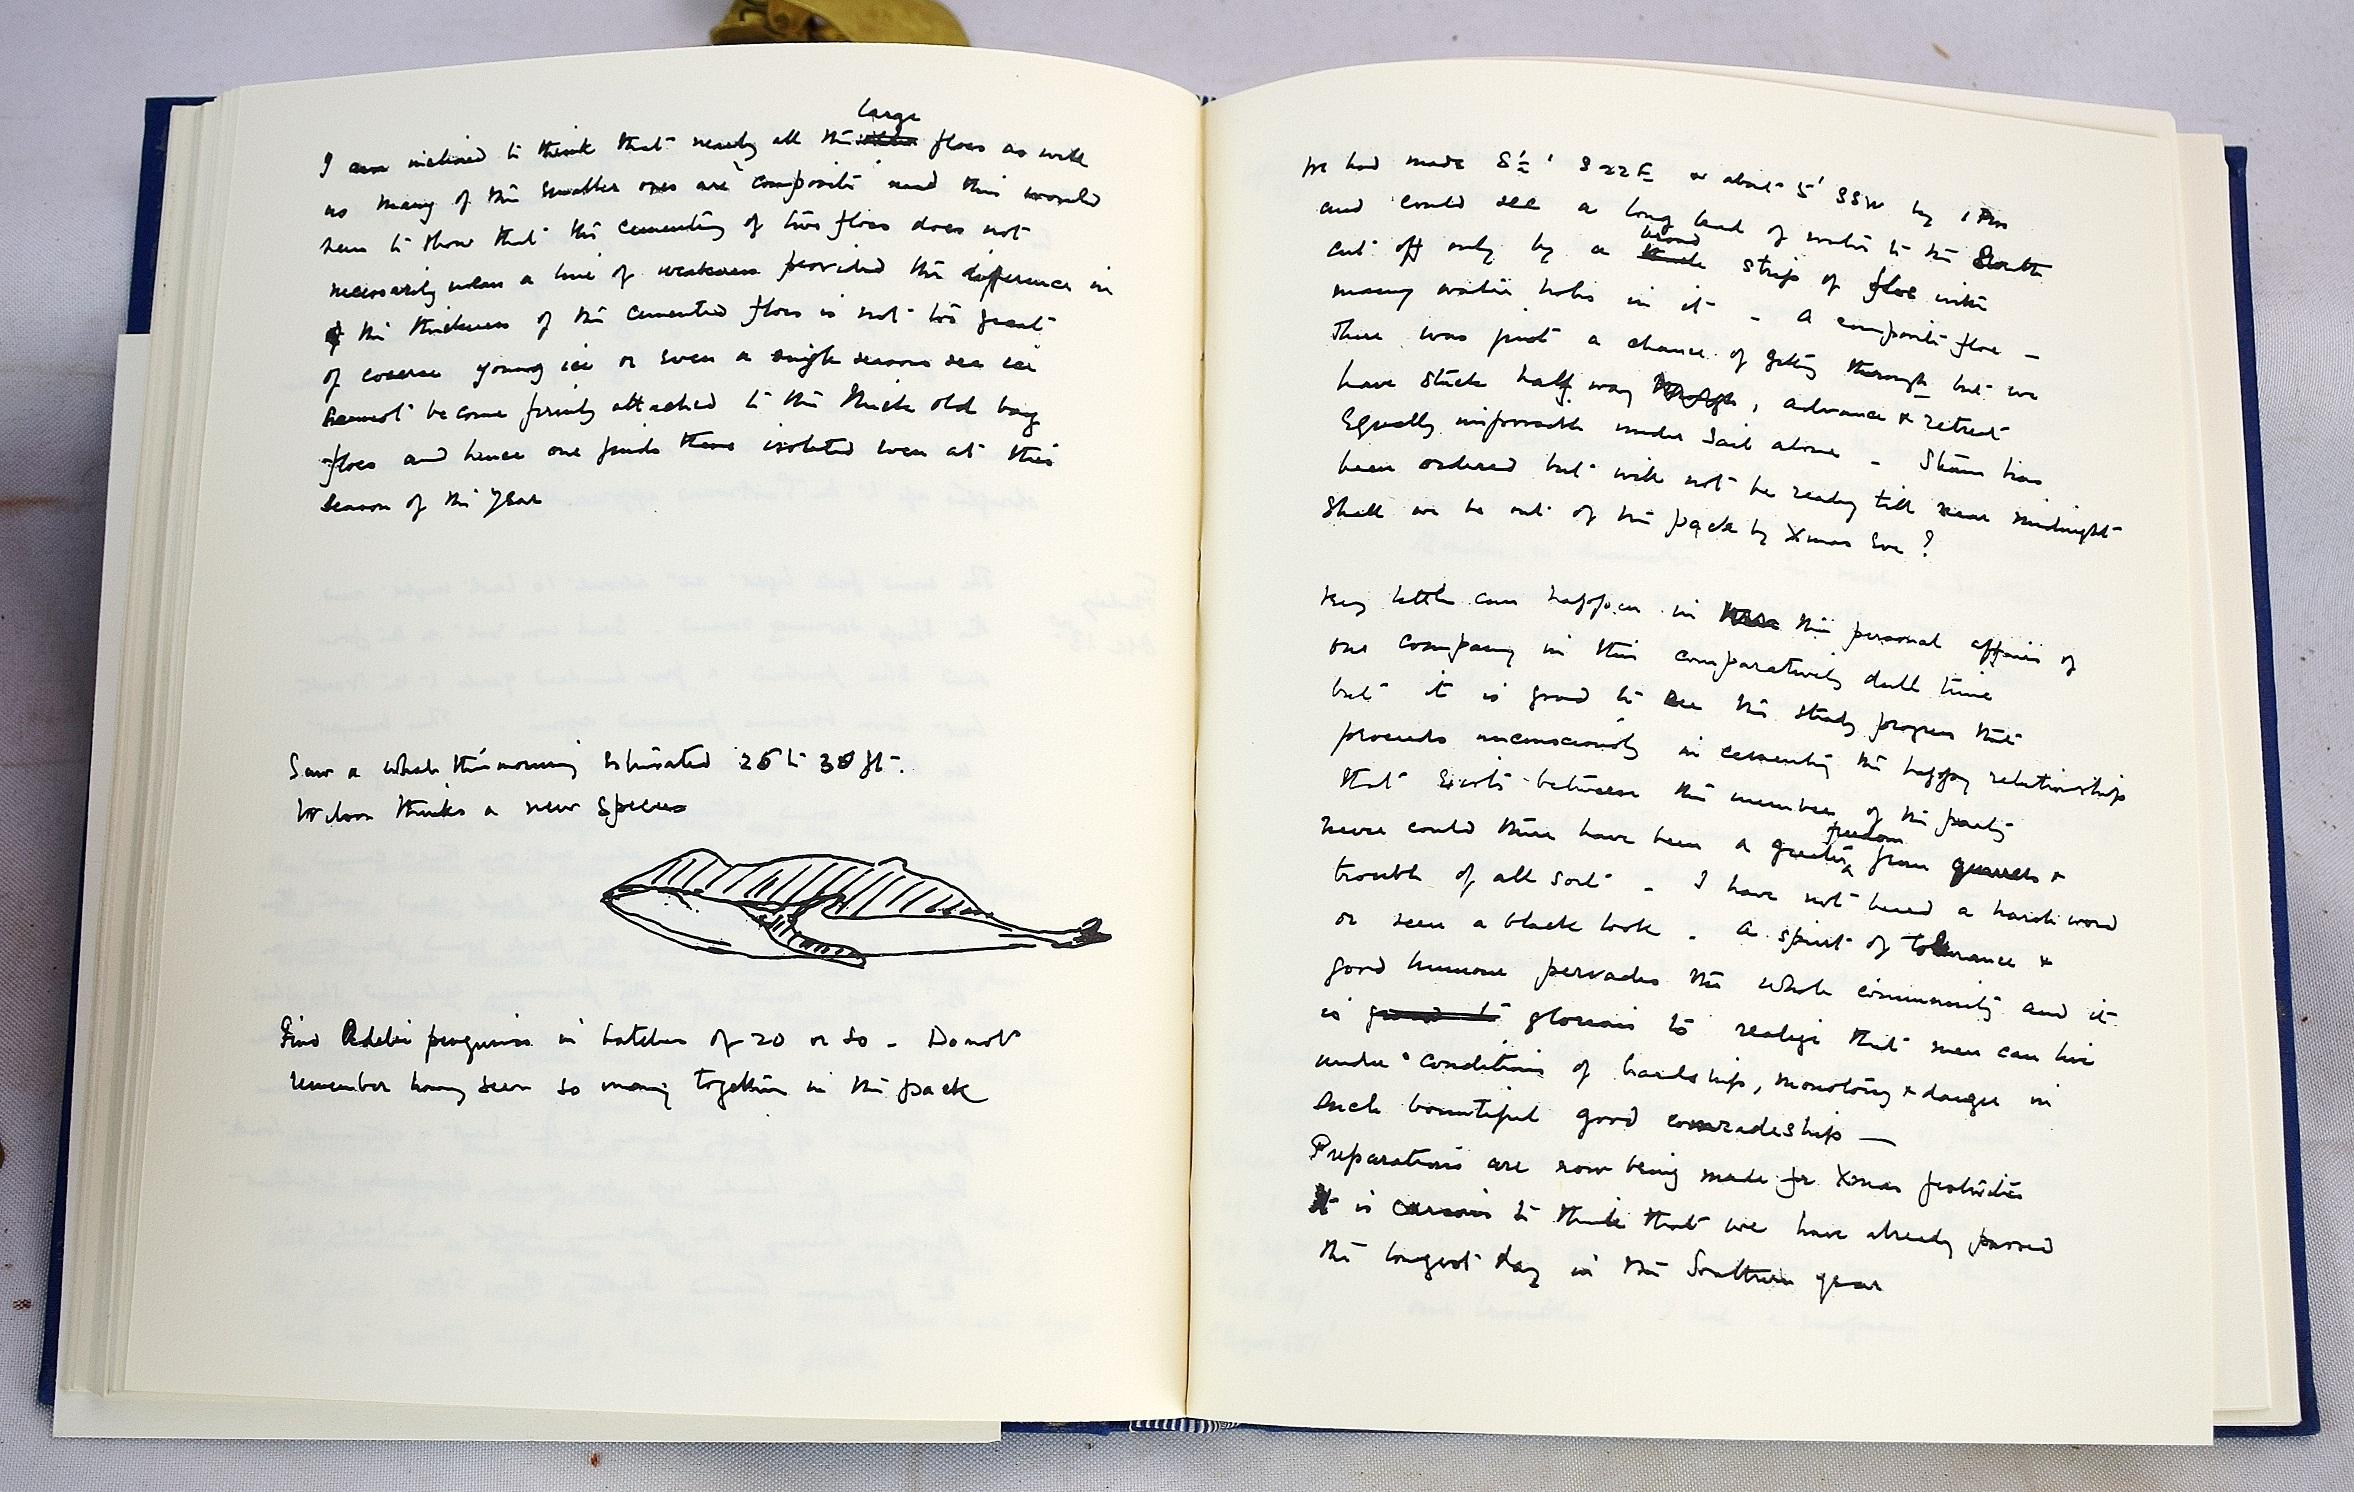 large
I am inclined to think that nearly all the floes as well
as many of the smaller ones are "composite" and this would
seem to show that the cementing of two floes does not
necessarily mean a line of weakness provided the difference in
the thickness of the cemented floes is not too great
of course young ice or even a single season sea ice
cannot become firmly attached to the thick old bay
floes and hence one finds these isolated even at this
season of the year
Saw a whale this morning estimated 25 to 30 ft.
Wilson thinks a new species
Find Adelie penguins in batches of 20 or so - Do not
remember having seen so many together in the pack
We had made 8½' S 22 E & about 5' SSW by 1 PM
and could see a long lead of water to the South
broad
cut off only by a strip of floe with
many water holes in it - a composite floe -
There was just a chance of getting through but we
have stuck half way, advance & retreat
Equally impossible under sail alone - Steam has
been ordered but will not be ready till near midnight
Shall we be out of the pack by Xmas Eve?
Very little can happen in the personal affairs of
our company in this comparatively dull time
but it is good to see the steady progress that
proceeds unconsciously in cementing the happy relationship
that exists between the members of the party
freedom
never could there have been a greater from quarrels &
trouble of all sort - I have not heard a harsh word
or seen a black look - A spirit of tolerance &
good humour pervades the whole community and it
is good to glorious to realize that men can live
under conditions of hardship, monotony & danger in
such bountiful good comradeship —
Preparations are now being made for Xmas festivities
It is curious to think that we have already passed
the longest day in the Southern year